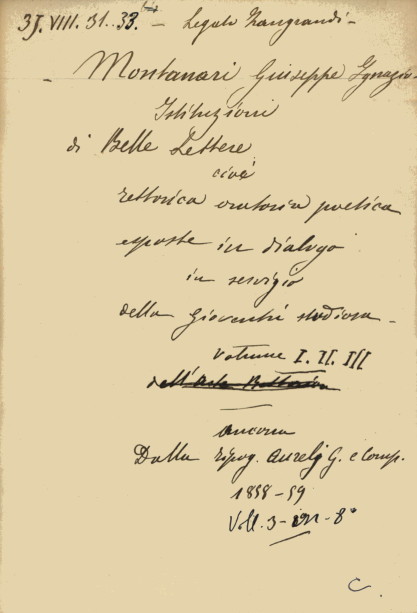 37. VIII. 31..33. - Legato Zangrandi -
- Montanari Giuseppe Ignazio -
Istituzioni
di Belle Lettere
cioè
rettorica oratoria poetica
esposte in dialogo
in servigio
della gioventù studiosa -
volume I. II. III
dell'Arte Rettorica
Ancona
Dalla tipog. Aurelj G. e Comp.
1858-59
Voll. 3 - in - 8°
C.